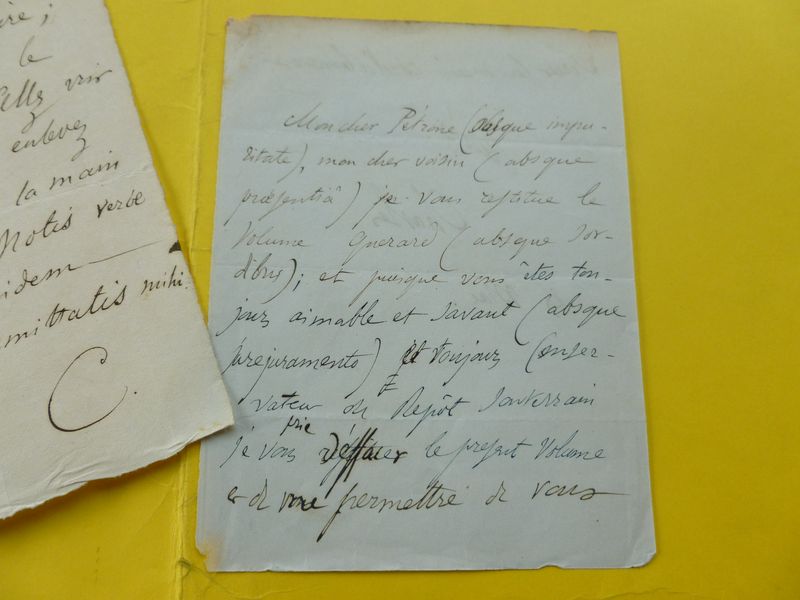 ire ;
le
vir
enlevez
la main
Notis verbe
idem
mittatis mihi.
C.
Mon cher Pétrone (absque impu-
ritate), mon cher voisin (absque
præsentiâ) je vous restitue le
Volume Querard (absque sor-
dibus); et puisque vous êtes tou-
jours aimable et savant (absque
prejuramento) et toujours Conser-
vateur du Depôt Souterrain
je vous prie d'effacer le present Volume
et de me permettre de vous